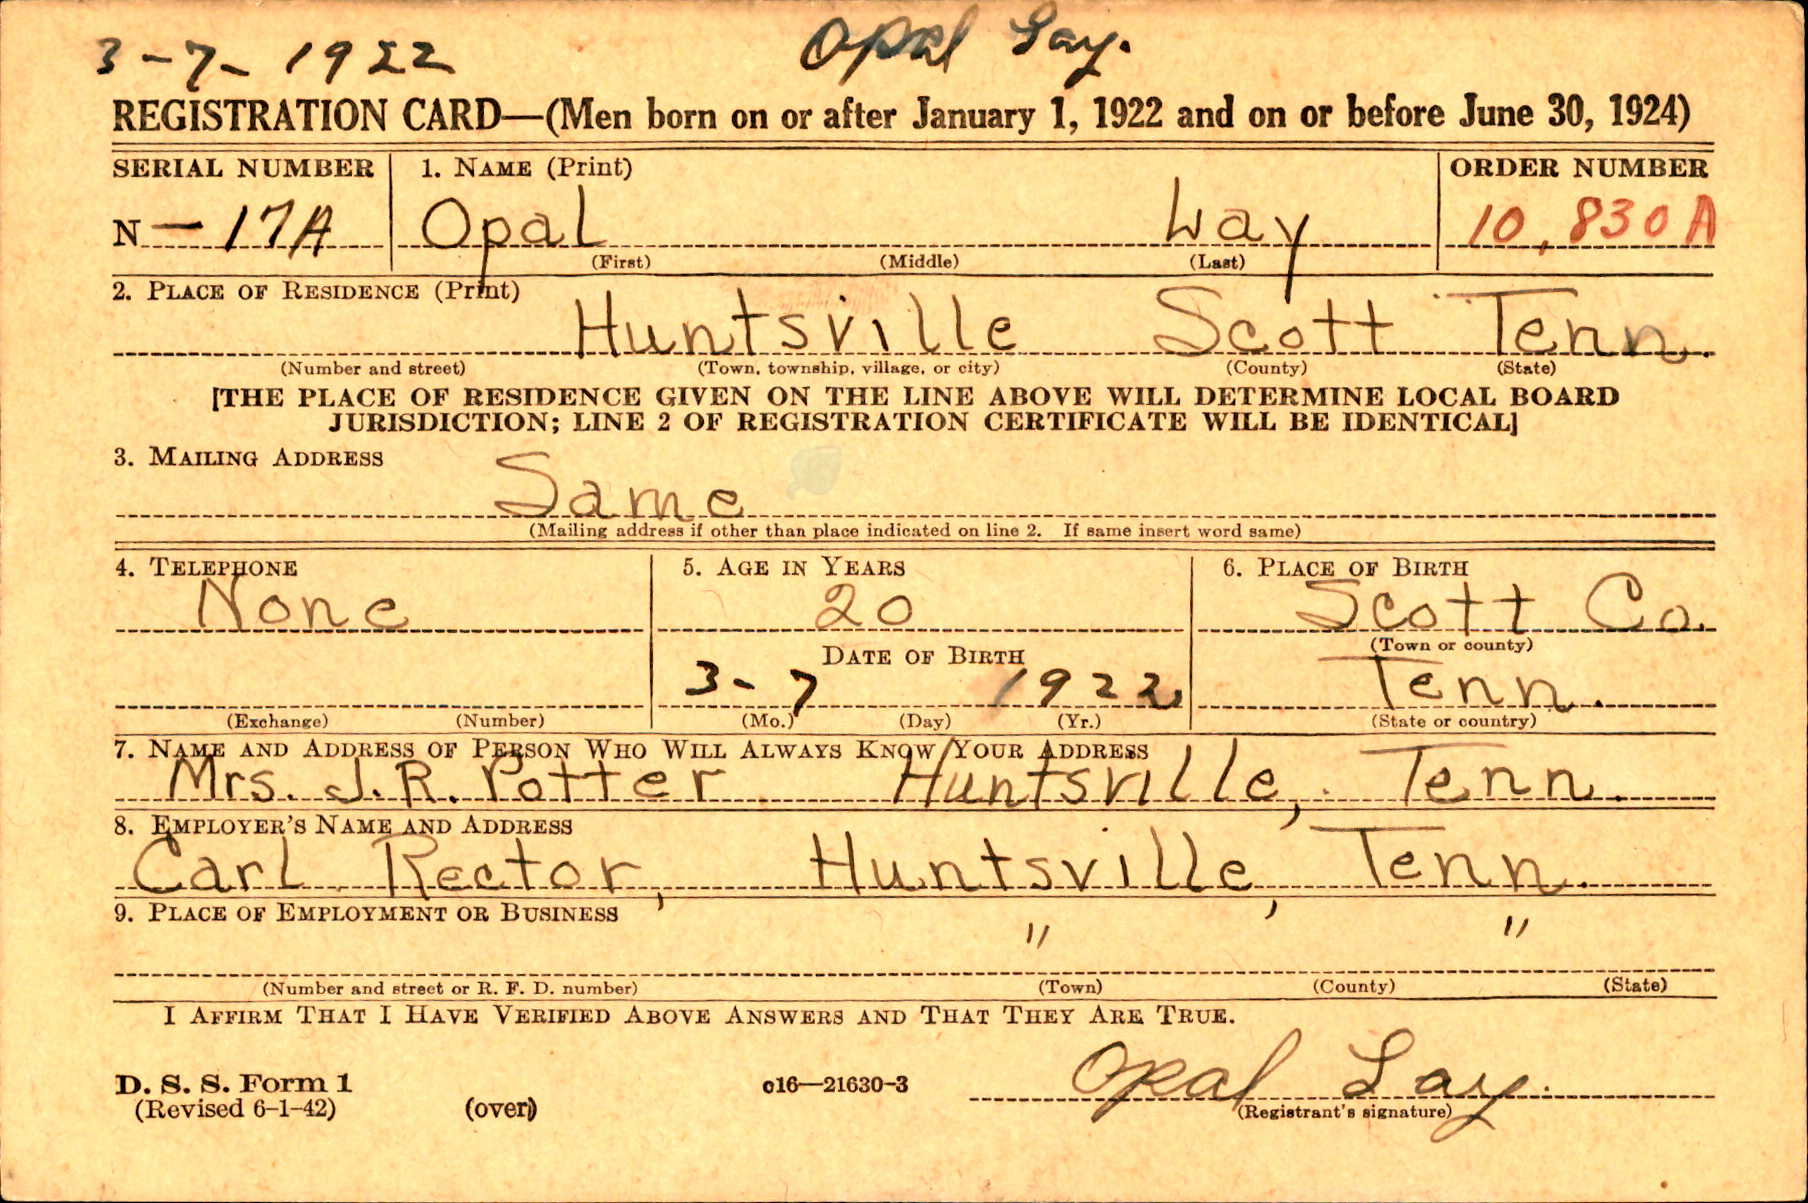 3-7-1922 Opal Lay.
REGISTRATION CARD—(Men born on or after January 1, 1922 and on or before June 30, 1924)
SERIAL NUMBER 1. NAME (Print) ORDER NUMBER
N -17A Opal Lay 10,830A
(First) (Middle) (Last)
2. PLACE OF RESIDENCE (Print)
Huntsville Scott Tenn.
(Number and street) (Town, township, village, or city) (County) (State)
[THE PLACE OF RESIDENCE GIVEN ON THE LINE ABOVE WILL DETERMINE LOCAL BOARD
JURISDICTION; LINE 2 OF REGISTRATION CERTIFICATE WILL BE IDENTICAL]
3. MAILING ADDRESS
Same
(Mailing address if other than place indicated on line 2. If same insert word same)
4. TELEPHONE 5. AGE IN YEARS 6. PLACE OF BIRTH
None 20 Scott Co.
(Town or county)
DATE OF BIRTH
3-7 1922 Tenn.
(Exchange) (Number) (Mo.) (Day) (Yr.) (State or country)
7. NAME AND ADDRESS OF PERSON WHO WILL ALWAYS KNOW YOUR ADDRESS
Mrs. J.R. Potter Huntsville, Tenn.
8. EMPLOYER'S NAME AND ADDRESS
Carl Rector, Huntsville, Tenn.
9. PLACE OF EMPLOYMENT OR BUSINESS
" "
(Number and street or R. F. D. number) (Town) (County) (State)
I AFFIRM THAT I HAVE VERIFIED ABOVE ANSWERS AND THAT THEY ARE TRUE.
Opal Lay.
D. S. S. Form 1 c16—21630-3
(Revised 6-1-42) (over) (Registrant's signature)